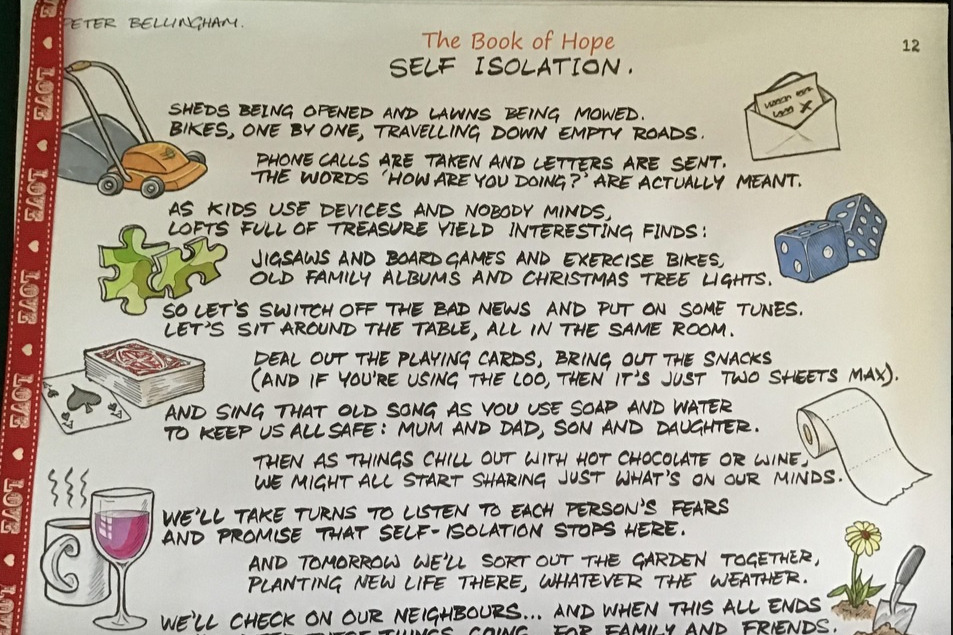 PETER BELLINGHAM.
The Book of Hope
12
SELF ISOLATION.
SHEDS BEING OPENED AND LAWNS BEING MOWED.
BIKES, ONE BY ONE, TRAVELLING DOWN EMPTY ROADS.
PHONE CALLS ARE TAKEN AND LETTERS ARE SENT.
THE WORDS 'HOW ARE YOU DOING?' ARE ACTUALLY MEANT.
AS KIDS USE DEVICES AND NOBODY MINDS,
LOFTS FULL OF TREASURE YIELD INTERESTING FINDS:
JIGSAWS AND BOARD GAMES AND EXERCISE BIKES,
OLD FAMILY ALBUMS AND CHRISTMAS TREE LIGHTS.
SO LET'S SWITCH OFF THE BAD NEWS AND PUT ON SOME TUNES.
LET'S SIT AROUND THE TABLE, ALL IN THE SAME ROOM.
DEAL OUT THE PLAYING CARDS, BRING OUT THE SNACKS
(AND IF YOU'RE USING THE LOO, THEN IT'S JUST TWO SHEETS MAX).
AND SING THAT OLD SONG AS YOU USE SOAP AND WATER
TO KEEP US ALL SAFE: MUM AND DAD, SON AND DAUGHTER.
THEN AS THINGS CHILL OUT WITH HOT CHOCOLATE OR WINE,
WE MIGHT ALL START SHARING JUST WHAT'S ON OUR MINDS.
WE'LL TAKE TURNS TO LISTEN TO EACH PERSON'S FEARS
AND PROMISE THAT SELF-ISOLATION STOPS HERE.
AND TOMORROW WE'LL SORT OUT THE GARDEN TOGETHER,
PLANTING NEW LIFE THERE, WHATEVER THE WEATHER.
WE'LL CHECK ON OUR NEIGHBOURS... AND WHEN THIS ALL ENDS
THESE THINGS GOING... FOR FAMILY AND FRIENDS.
LOVE
LOVE
LOVE
LOVE
LOVE
LOVE
LOVE